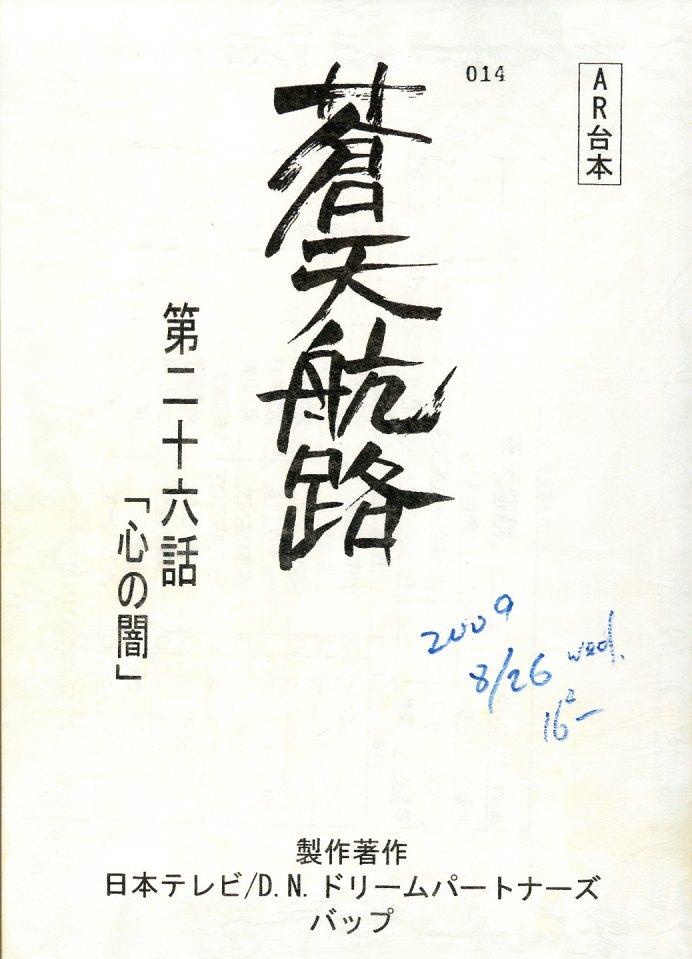 014
AR台本
蒼天航路
第二十六話
「心の闇」
2009
8/26 wed.
16²−
製作著作
日本テレビ/D.N.ドリームパートナーズ
バップ